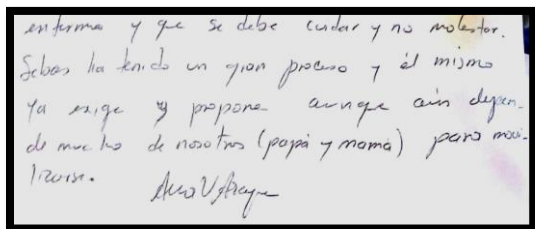 enferma y que se debe cuidar y no molestar.
Sebas ha tenido un gran proceso y él mismo
ya exige y propone aunque aún depen-
de mucho de nosotros (papá y mamá) para movi-
lizarse.